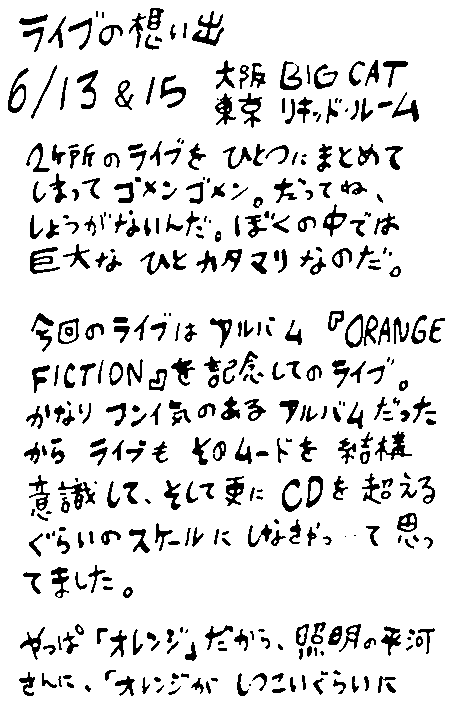 ライブの想い出
6/13&15 大阪 BIG CAT
東京 リキッド・ルーム
2ヶ所のライブを ひとつにまとめて
しまって ゴメンゴメン。だってね、
しょうがないんだ。ぼくの中では
巨大な ひとカタマリなのだ。
今回のライブは アルバム『ORANGE
FICTION』を記念してのライブ。
かなり フンイ気のある アルバムだった
から ライブも そのムードを 結構
意識して、そして更に CDを超える
ぐらいのスケールに しなきゃ…て思っ
てました。
やっぱ「オレンジ」だから、照明の平河
さんに、「オレンジが しつこいぐらいに